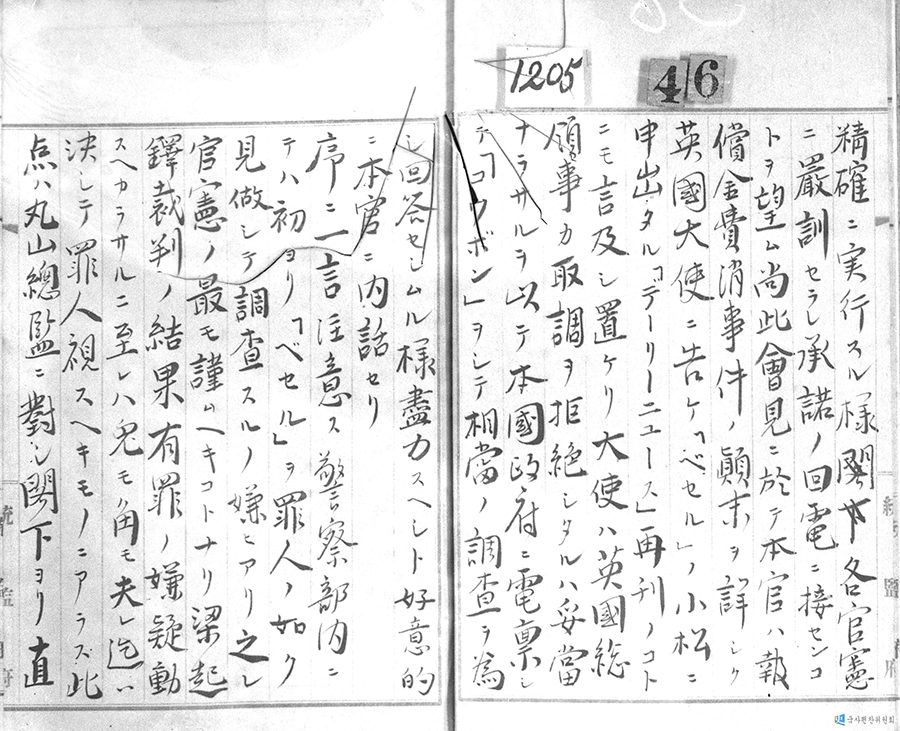 1205
46
精確ニ実行スル様閣下各官憲
ニ嚴訓セラレ承諾ノ回電ニ接センコ
トヲ望ム尚此會見ニ於テ本官ハ報
償金費消事件ノ顛末ヲ詳シク
英國大使ニ告ケ「ベセル」ノ小松ニ
申出タル「デーリーニュース」再刊ノコト
ニモ言及シ置ケリ大使ハ英國総
領事カ取調ヲ拒絶シタルハ妥當
ナラサルヲ以テ本國政府ニ電稟シ
テ「コクボン」ヲシテ相當ノ調査ヲ為
シ回答セシムル様盡力スヘシト好意的
ニ本官ニ内話セリ
序ニ一言注意ス警察部内ニ
テハ初ヨリ「ベセル」ヲ罪人ノ如ク
見做シテ調査スルノ嫌ヒアリ之レ
官憲ノ最モ謹ムヘキコトナリ梁起
鐸裁判ノ結果有罪ノ嫌疑動
スヘカラサルニ至レハ兎モ角モ夫レ迄ハ
決シテ罪人視スヘキモノニアラズ此
点ハ丸山總監ニ對シ閣下ヨリ直
統監府
국사편찬위원회